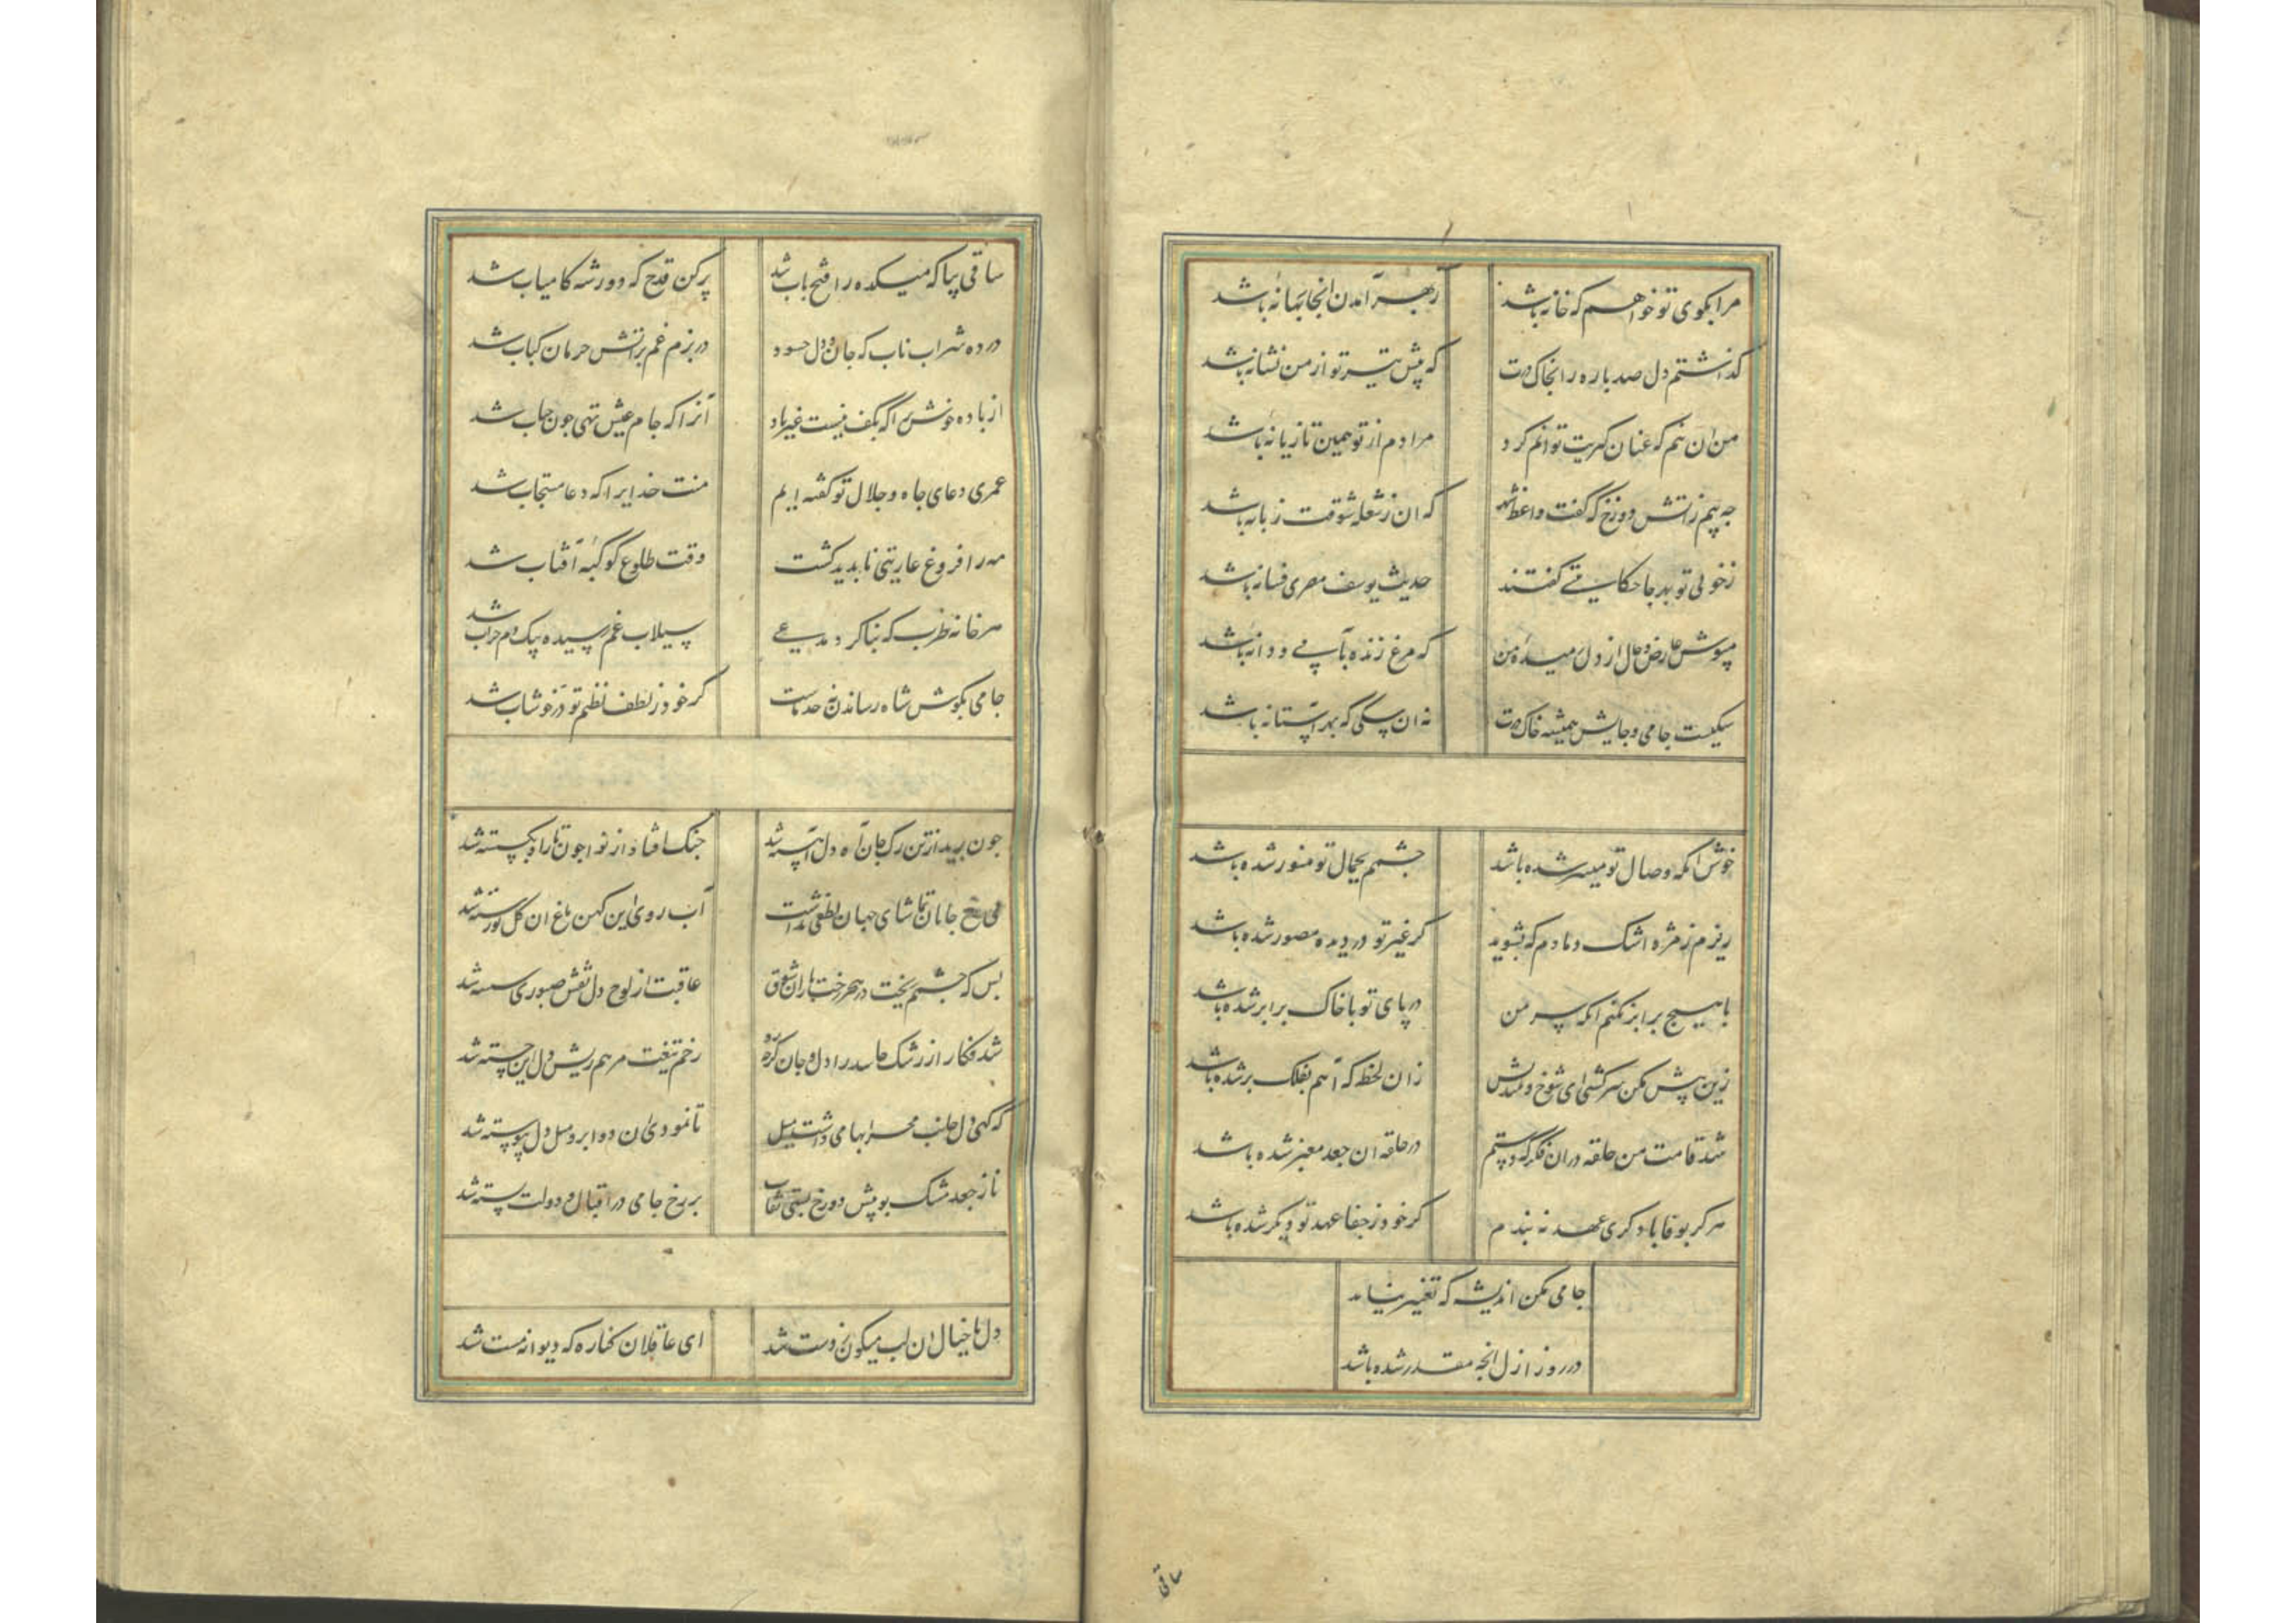 مرا بکوی تو خواهم که خانه باشد ز بهر آمدن انجا بهانه باشد
گذاشتم دل صد پاره را بخاک درت که پیش تیر تو از من نشانه باشد
من ان نیم که عنان گیریت توانم کرد مرا دم از تو همین تازیانه باشد
چه بیم ز آتش دوزخ که گفت واعظ شهر که ان ز شعله شوقت زبانه باشد
ز خوبی تو بهر جا حکایتی گفتند حدیث یوسف مصری فسانه باشد
مپوش عارض و خال از دل رمیده من که مرغ زنده بآبی و دانه باشد
سکیست جامی و جایش همیشه خاک درت نه ان سکی که بهر آستانه باشد
خوش انکه وصال تو میسر شده باشد چشمم بجمال تو منور شده باشد
ریزم ز مژه اشک دمادم که بشوید گر غیر تو در دیده مصور شده باشد
با هیچ برابر نکنم انکه سر من در پای تو با خاک برابر شده باشد
زین پیش مکن سرکشی ای شوخ و بیندیش زان لحظه که آهم بفلک بر شده باشد
شد قامت من حلقه در ان فکر که دستم در حلقه ان جعد معنبر شده باشد
هرگز بوفا با دگری عهد نه بندم گر خود ز جفا عهد تو دیگر شده باشد
جامی مکن اندیشه که تغییر نیابد
در روز ازل انچه مقدر شده باشد
ساقی
ساقی بیا که میکده را فتح باب شد پر کن قدح که دور شه کامیاب شد
در ده شراب ناب که جان و دل حسود در بزم غم بر آتش حرمان کباب شد
از باده خوش بر اکه بکف نیست غیر باد آنرا که جام عیش تهی چون حباب شد
عمری دعای جاه و جلال تو گفته ایم منت خدایرا که دعا مستجاب شد
مه را فروغ عاریتی ناپدید گشت وقت طلوع کوکبه آفتاب شد
هر خانه طرب که بنا کرد مدعی سیلاب غم رسیده بیک دم خراب شد
جامی بگوش شاه رساندن نه حد ماست گر خود ز لطف نظم تو در خوشاب شد
چون برید از تن رگ جان آه دل آهسته شد چنگ افتاد از نوا چون تار او بکسسته شد
بی رخ جانان تماشای جهان لطفی نداشت آب روی این کهن باغ ان گل نو رسته شد
بس که چشمم ریخت در هجر رخت باران شوق عاقبت از لوح دل نقش صبوری شسته شد
شد فکار از رشک حاسد را دل و جان گرچه زخم تیغت مرهم ریش دل این خسته شد
که گهی دل جانب محرابها می داشت میل تا نمودی ان دو ابرو میل دل پیوسته شد
تا ز جعد مشک بو پیش دو رخ بستی نقاب بر رخ جامی در اقبال و دولت بسته شد
دل با خیال ان لب میگون ز دست شد ای عاقلان کناره که دیوانه مست شد